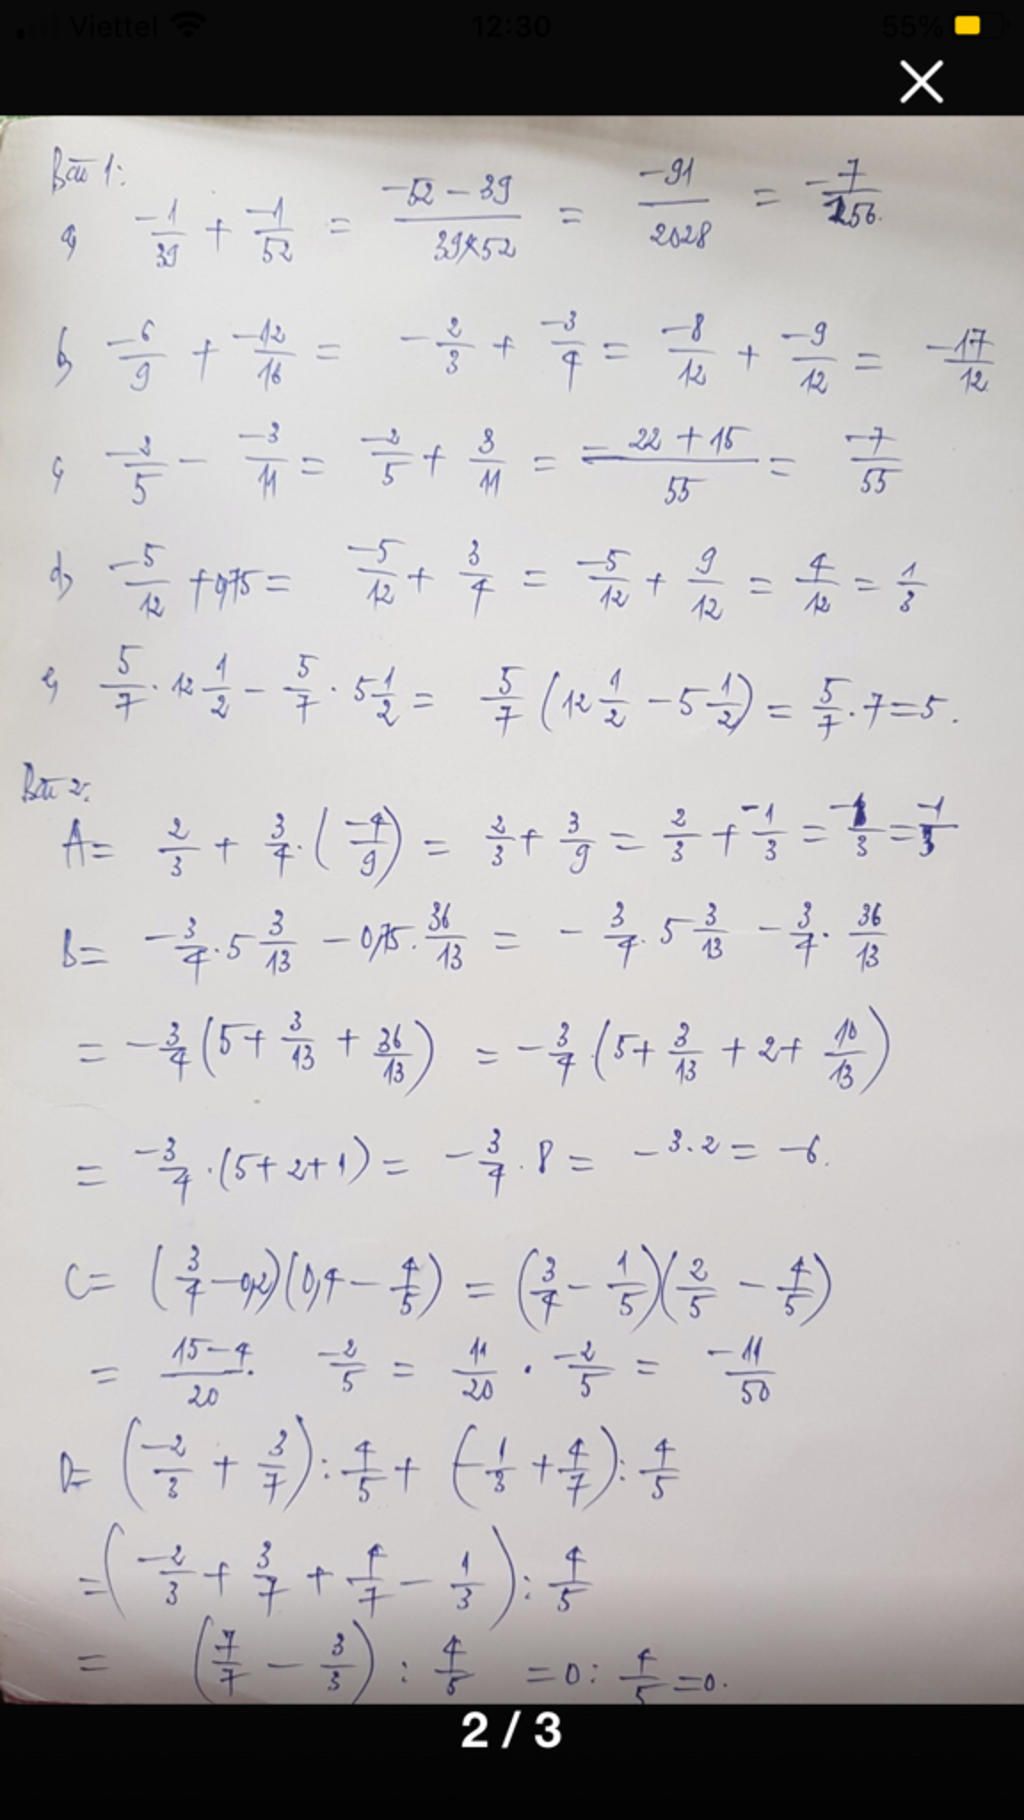 Viettel 12:30 55%
Bài 1:
a, -1/39 + -1/52 = (-52 - 39)/(39×52) = -91/2028 = -7/156.
b, -6/9 + -12/16 = -2/3 + -3/4 = -8/12 + -9/12 = -17/12
c, -2/5 - -3/11 = -2/5 + 3/11 = (-22 + 15)/55 = -7/55
d, -5/12 + 0,75 = -5/12 + 3/4 = -5/12 + 9/12 = 4/12 = 1/3
e, 5/7 . 12 1/2 - 5/7 . 5 1/2 = 5/7 (12 1/2 - 5 1/2) = 5/7 . 7 = 5.
Bài 2:
A = 2/3 + 3/4 . (-4/9) = 2/3 + 3/9 = 2/3 + -1/3 = -1/3 = -1/3
B = -3/4 . 5 3/13 - 0,75 . 36/13 = - 3/4 . 5 3/13 - 3/4 . 36/13
= -3/4 (5 + 3/13 + 36/13) = -3/4 . (5 + 3/13 + 2 + 10/13)
= -3/4 . (5 + 2 + 1) = -3/4 . 8 = -3 . 2 = -6.
C = (3/4 - 0,2)(0,4 - 4/5) = (3/4 - 1/5)(2/5 - 4/5)
= (15 - 4)/20 . -2/5 = 11/20 . -2/5 = -11/50
D = (-2/3 + 3/7) : 4/5 + (-1/3 + 4/7) : 4/5
= (-2/3 + 3/7 + 4/7 - 1/3) : 4/5
= (7/7 - 3/3) : 4/5 = 0 : 4/5 = 0.
2 / 3